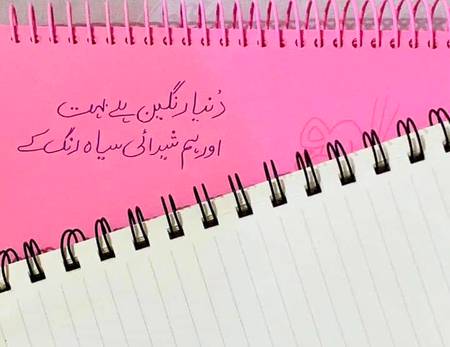 دُنیا رنگین ہے بہت
اور ہم شیدائی سیاہ رنگ کے